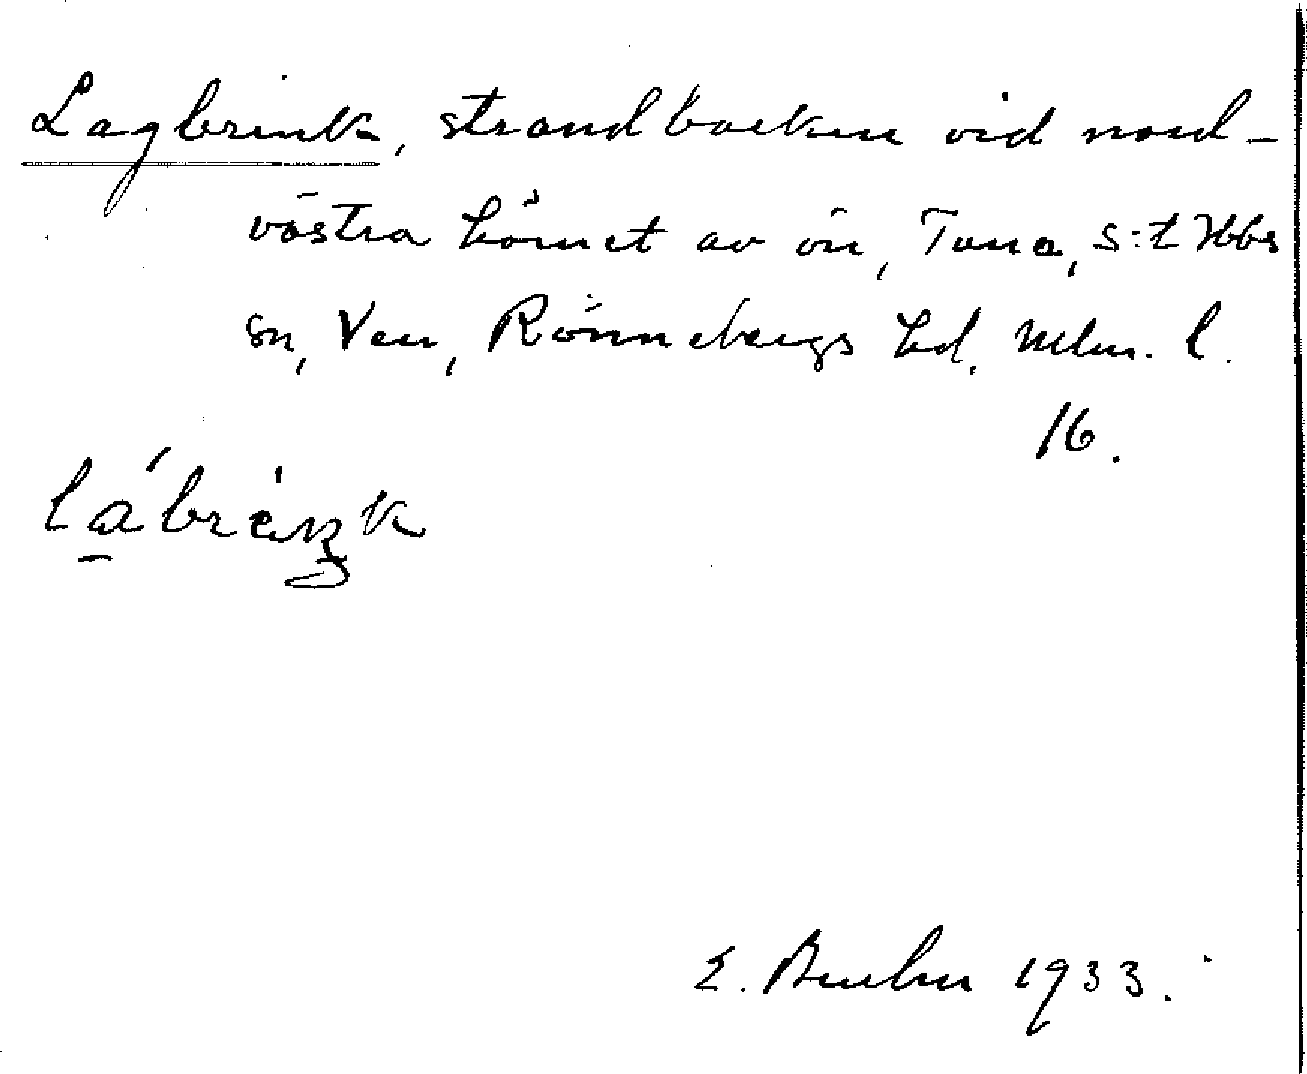 Lagbrink, strandbacken vid nord-
västra hörnet av ön, Tuna, S:t Ibbs
sn, Ven, Rönnebergs hd, Mlm. l.
16.
lábrèŋk
E. 1933.